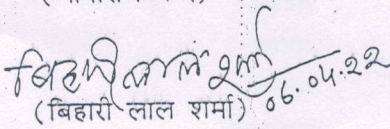 बिहारी लाल शर्मा
06.04.22
(बिहारी लाल शर्मा)